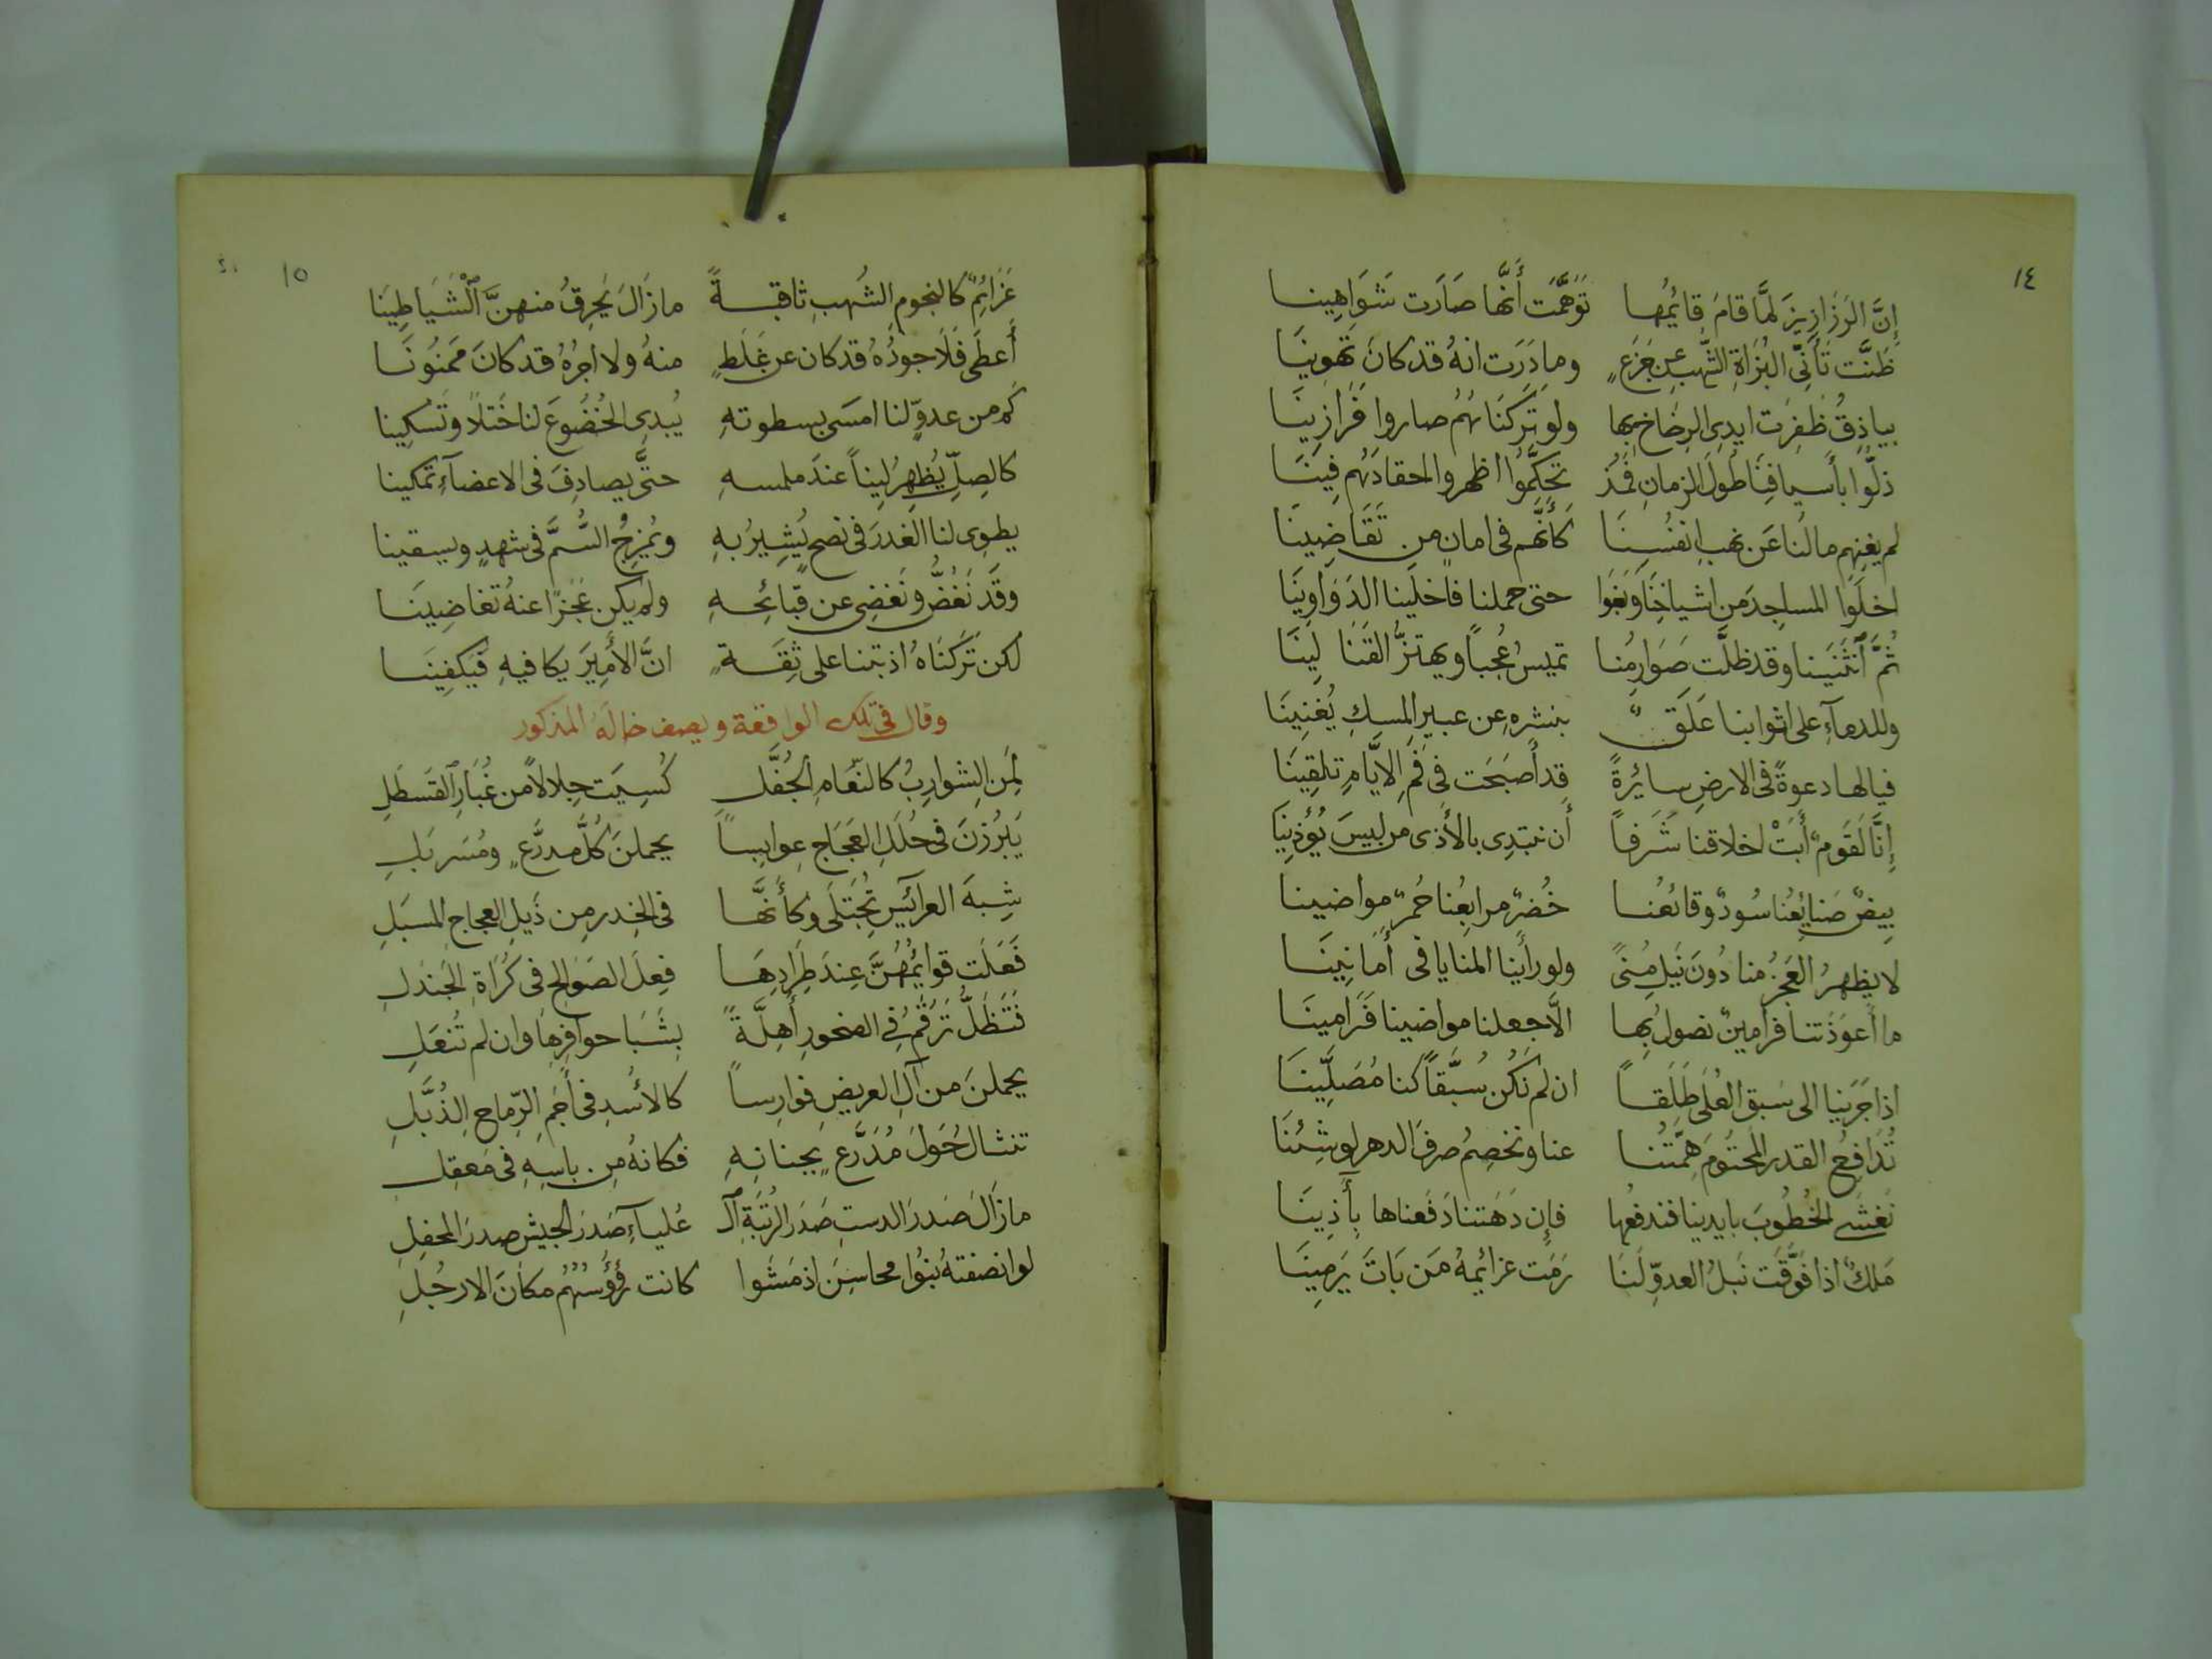 ١٤
إِنَّ الزَرازِيزَ لَمَّا قامَ قائِمُها توَهَّمَت أَنَّها صَارَت شَوَاهِينا
ظَنَّت تَأَنِّى البُزَاةِ الشُّهبِ عن جَزَعٍ وما دَرَت انهُ قد كانَ تَهوِينَا
بياذِقٌ ظَفِرَت ايدِى الرِخاخ بها ولو تَرَكنَاهُمُ صاروا فَرَازِينَا
ذلّوا بأَسيافِنَا طُولَ الزمانِ فَمُذ تحكَّمُوا اظهروا احقادَهُم فِينَا
لم يغنِهِم مالُنا عَن نهبِ انفُسِنَا كَأَنَّهم فى امانٍ من تَقَاضِينَا
اخلَوا المساجِدَ من اشياخِنَا وَبَغَوا حتى حملنا فاخلَينا الدَوَاوِينَا
ثُمَّ ٱنثَنَينا وقد ظلَّت صَوَارِمُنا تميسُ عُجباً ويهتزُّ القَنَا لِينَا
وللدمآءِ على اثوابنا عَلَقٌ بنشرِهِ عن عبيرِ المِسكِ يُغنِينَا
فيالها دعوةً فى الارضِ سائِرةً قد أَصبَحَت فى فَمِ الايَّامِ تلقِينَا
إِنَّا لَقَومٌ أَبَتْ اخلاقنا شَرَفاً أَن نبتدِى بالأَذى من ليسَ يُؤذِينَا
بِيضٌ صَنايِعُنا سُودٌ وقائعُنا خُضرٌ مرابعُنا حُمرٌ مواضينا
لا يظهرُ العَجزُ منا دُونَ نَيلِ مُنىً ولو رأَينا المنايا فى أَمَانِينَا
ما أَعوَذَتنا فرامينٌ نصولُ بِها الَّا جعلنا مواضينا فَرَامينَا
اذا جَرَينا الى سَبق العُلَى طَلَقاً ان لم نَكُن سُبَّقاً كنا مُصَلِّينَا
تُدَافِعُ القدرَ المحتُومَ هِمَّتُنا عنا ونخصِمُ صرفَ الدهر لو شِئنَا
نَغشَى الخُطُوبَ بايدينا فندفعُها فإِن دَهَتنا دَفَعناها بِأَذِينَا
مَلكٌ اذا فَوَّقَت نَبلُ العدوِّ لنَا رَمَت عزائِمهُ مَن بَاتَ يَرمِينَا
١٥
عَزائِمٌ كالنجوم الشُهبِ ثاقبةً مازَالَ يُحرِقُ منهنَّ ٱلْشَيَاطِينَا
أَعطَى فَلَا جودُهُ قد كان عن غَلَطٍ منهُ ولا اجرُهُ قد كانَ مَمنُونَا
كم من عدوٍّ لنا امسَى بسطوتهِ يُبدِى الخُضُوعَ لنا خَتلاً وَتَسكِينا
كالصِلِّ يُظهِرُ لِيناً عندَ ملمسهِ حتَّى يصادِفَ فى الاعضآءِ تمكينا
يطوِى لنا الغدرَ فى نصحٍ يُشِيرُ بهِ ويُمزِجُ السُّمَّ فى شهدٍ ويسقينا
وقَد نَغُضُّ ونَغضِى عن قبائِحهِ ولم يكن عَجزًا عنهُ تغاضِينَا
لكن تَرَكنَاهُ اذ بتنا على ثِقَةٍ انَّ الأَمِيرَ يكافيهِ فيَكفِينَا
وقال فى تلك الواقعة ويصف خاله المذكور
لِمَن الشوارِبُ كالنعَامِ الجُفَّلِ كُسِيَت جِلالاً من غُبَارِ ٱلقَسطَلِ
يَبرُزنَ فى حُلَلِ العَجَاجِ عوابِساً يحملنَ كُلَّ مدرَّعٍ ومُسَربَلِ
شِبهَ العرائِسِ تُجتَلَى وكأَنَّها فى الخِدرِ من ذَيلِ العجاجِ المسبَلِ
فَعَلَت قوائمُهُنَّ عِندَ طِرَادِهَا فِعلَ الصَوَالجِ فى كُرَاةِ الجَندَلِ
فَتَظَلُّ تَرقُمُ فى الصخورِ أَهِلَّةً بِشَبَا حوافِرِها وان لم تُنعَلِ
يحملنَ من آلِ العريضِ فوارِساً كالأسُدِ فى أَجَمِ الرِّماحِ الذُبَّلِ
تنثالُ حَولَ مُدَرَّعٍ بجنانهِ فكانهُ من باسِهِ فى مَعقِلِ
مازَالَ صَدرَ الدستِ صَدرَ الرُتبَةِ ٱلـ عَليآءِ صَدرَ الجيشِ صدرَ المحفِلِ
لو انصفتهُ بنُوا محاسِنَ اذ مَشَوا كانت رُؤُسُهُم مكانَ الارجُلِ